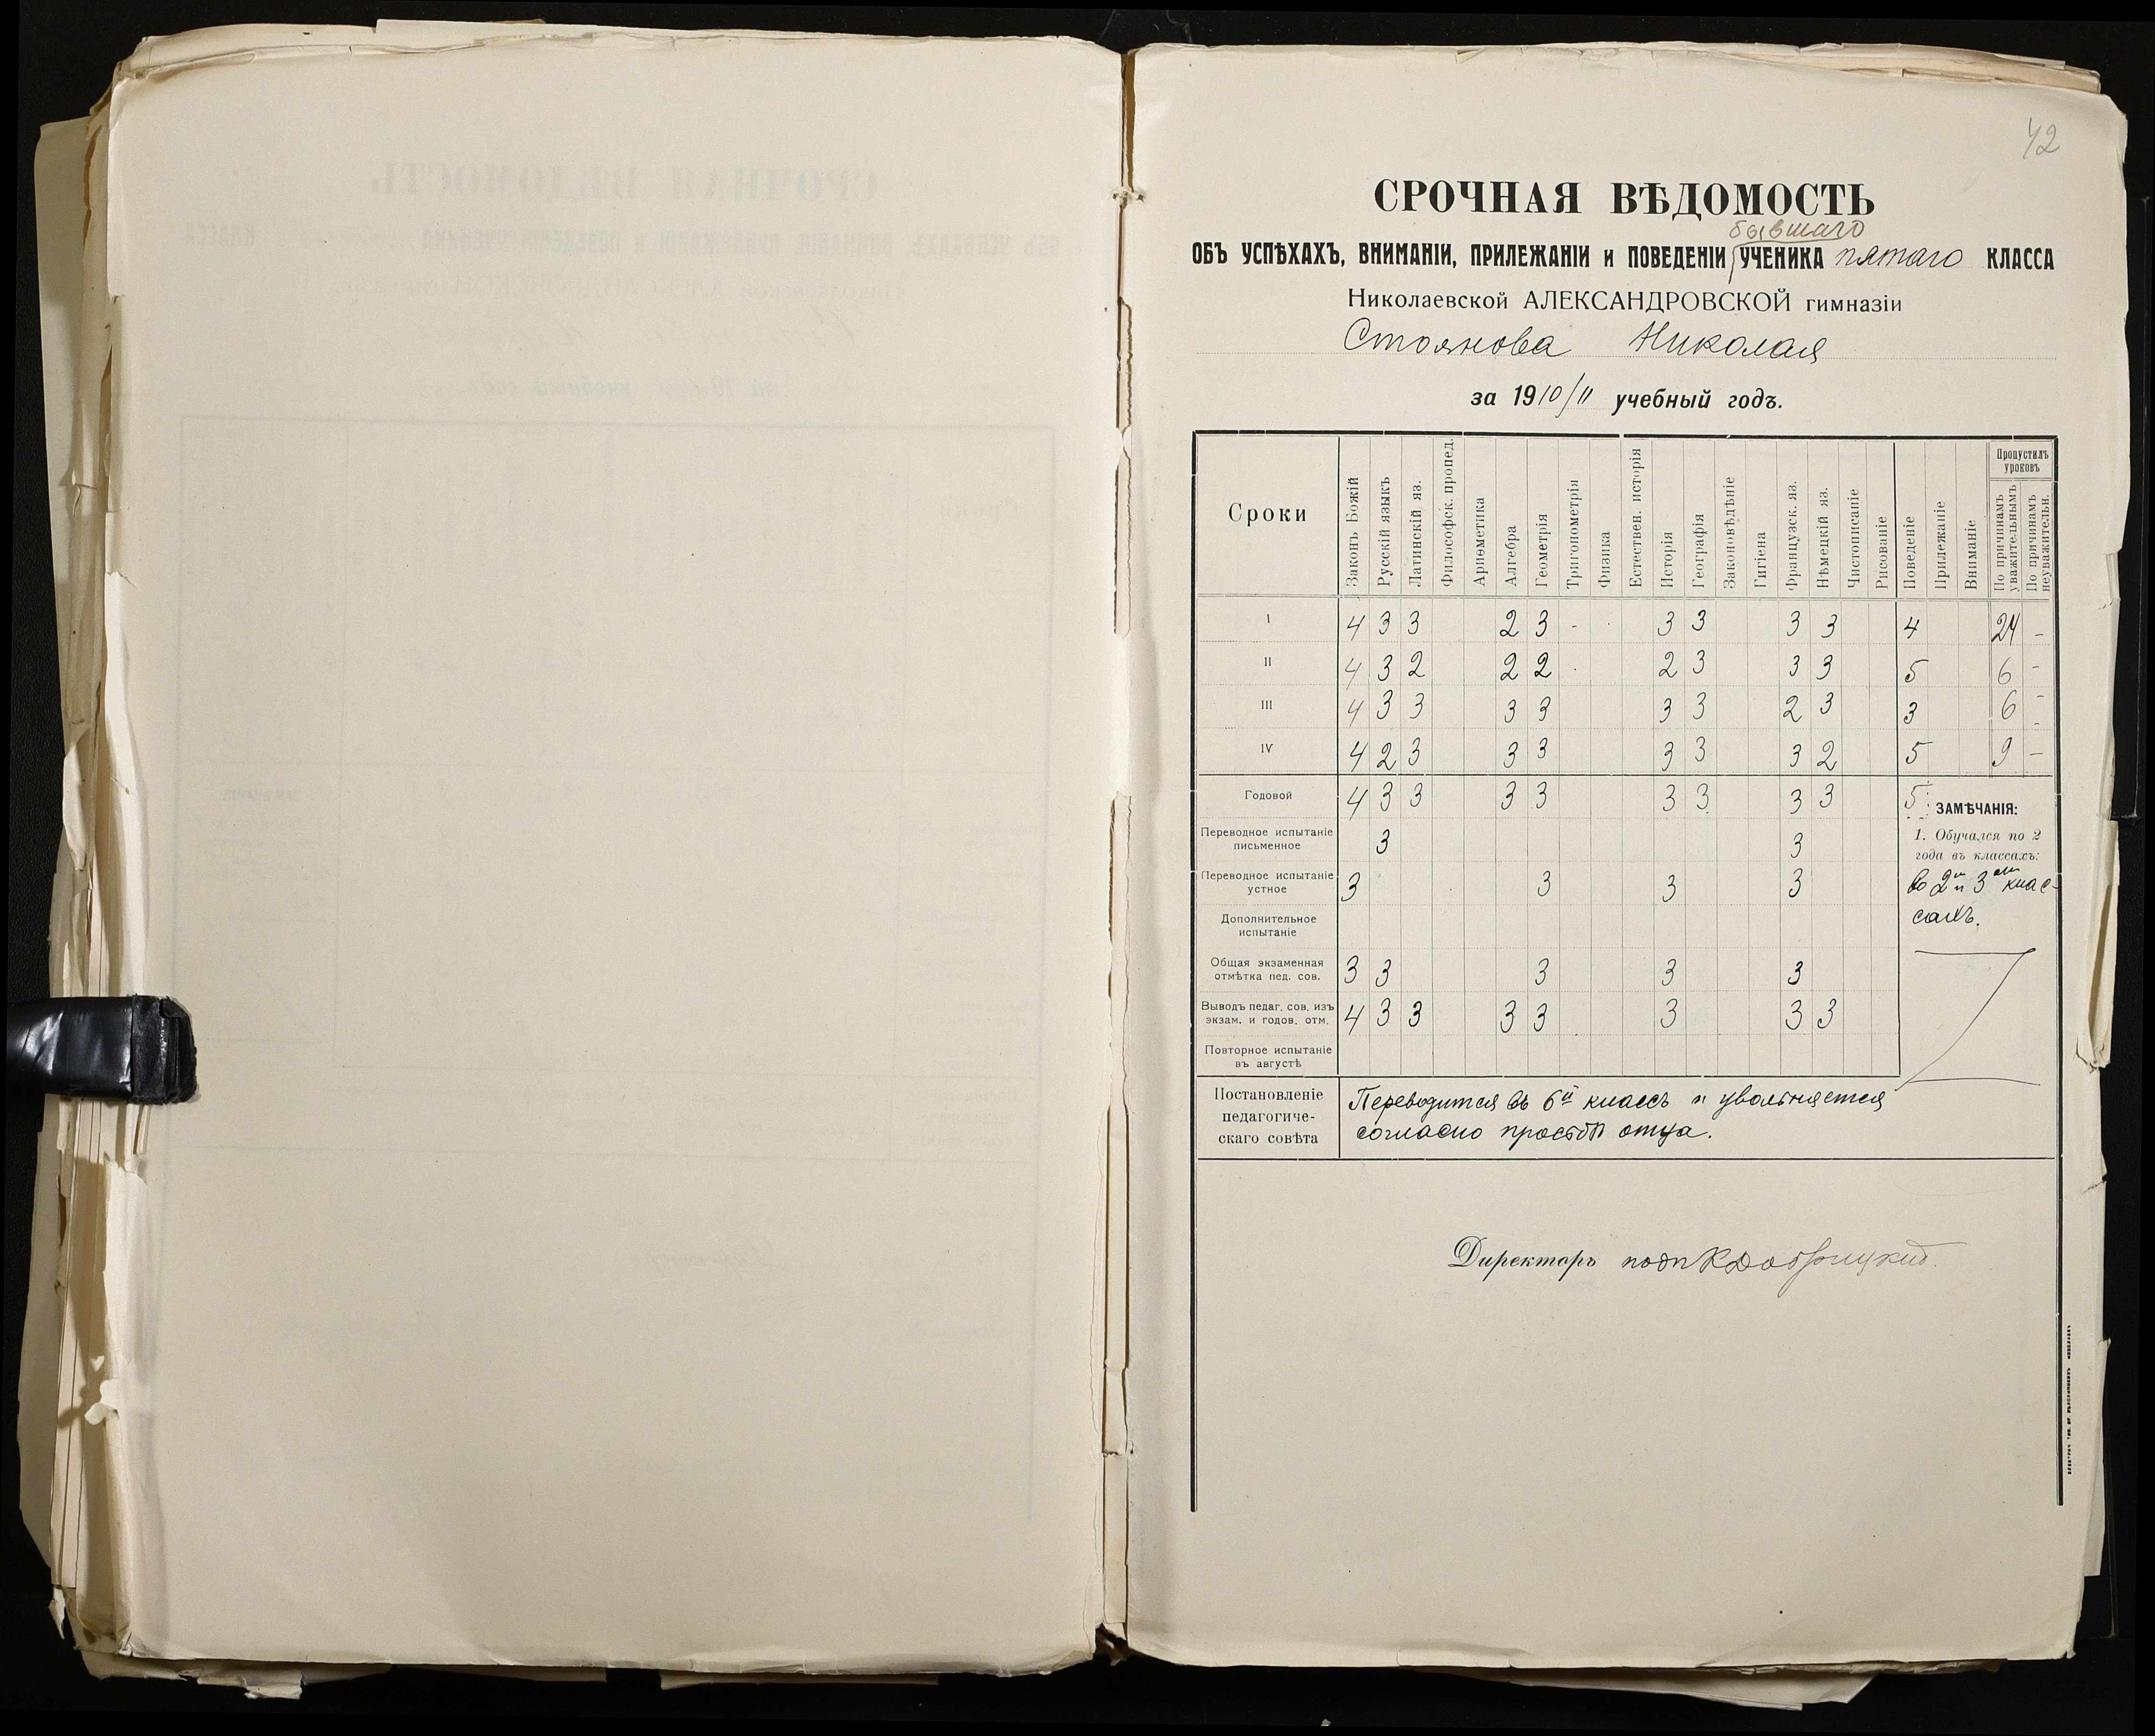 42
СРОЧНАЯ ВѢДОМОСТЬ
бывшаго
ОБЪ УСПѢХАХЪ, ВНИМАНІИ, ПРИЛЕЖАНІИ и ПОВЕДЕНІИ УЧЕНИКА пятаго КЛАССА
Николаевской АЛЕКСАНДРОВСКОЙ гимназіи
Стоянова Николая
за 1910/11 учебный годъ.
Сроки
Законъ Божій
Русскій языкъ
Латинскій яз.
Философск. пропед.
Ариѳметика
Алгебра
Геометрія
Тригонометрія
Физика
Естествен. исторія
Исторія
Географія
Законовѣдѣніе
Гигіена
Французск. яз.
Нѣмецкій яз.
Чистописаніе
Рисованіе
Поведеніе
Прилежаніе
Вниманіе
Пропустилъ уроковъ
По причинамъ уважительнымъ
По причинамъ неуважительн.
I 4 3 3 2 3 - 3 3 3 3 4 24 –
II 4 3 2 2 2 2 3 3 3 5 6 –
III 4 3 3 3 3 3 3 2 3 3 6 –
IV 4 2 3 3 3 3 3 3 2 5 9 –
Годовой 4 3 3 3 3 3 3 3 3 5
Переводное испытаніе письменное 3 3
Переводное испытаніе устное 3 3 3 3
Дополнительное испытаніе
Общая экзаменная отмѣтка пед. сов. 3 3 3 3 3
Выводъ педаг. сов. изъ экзам. и годов. отм. 4 3 3 3 3 3 3 3
Повторное испытаніе въ августѣ
ЗАМѢЧАНІЯ:
1. Обучался по 2
года въ классахъ:
во 2м и 3ем клас-
сахъ.
Постановленіе педагогиче-скаго совѣта
Переводится въ 6й классъ и увольняется
согласно просьбѣ отца.
Директоръ подп К Добрицкій.